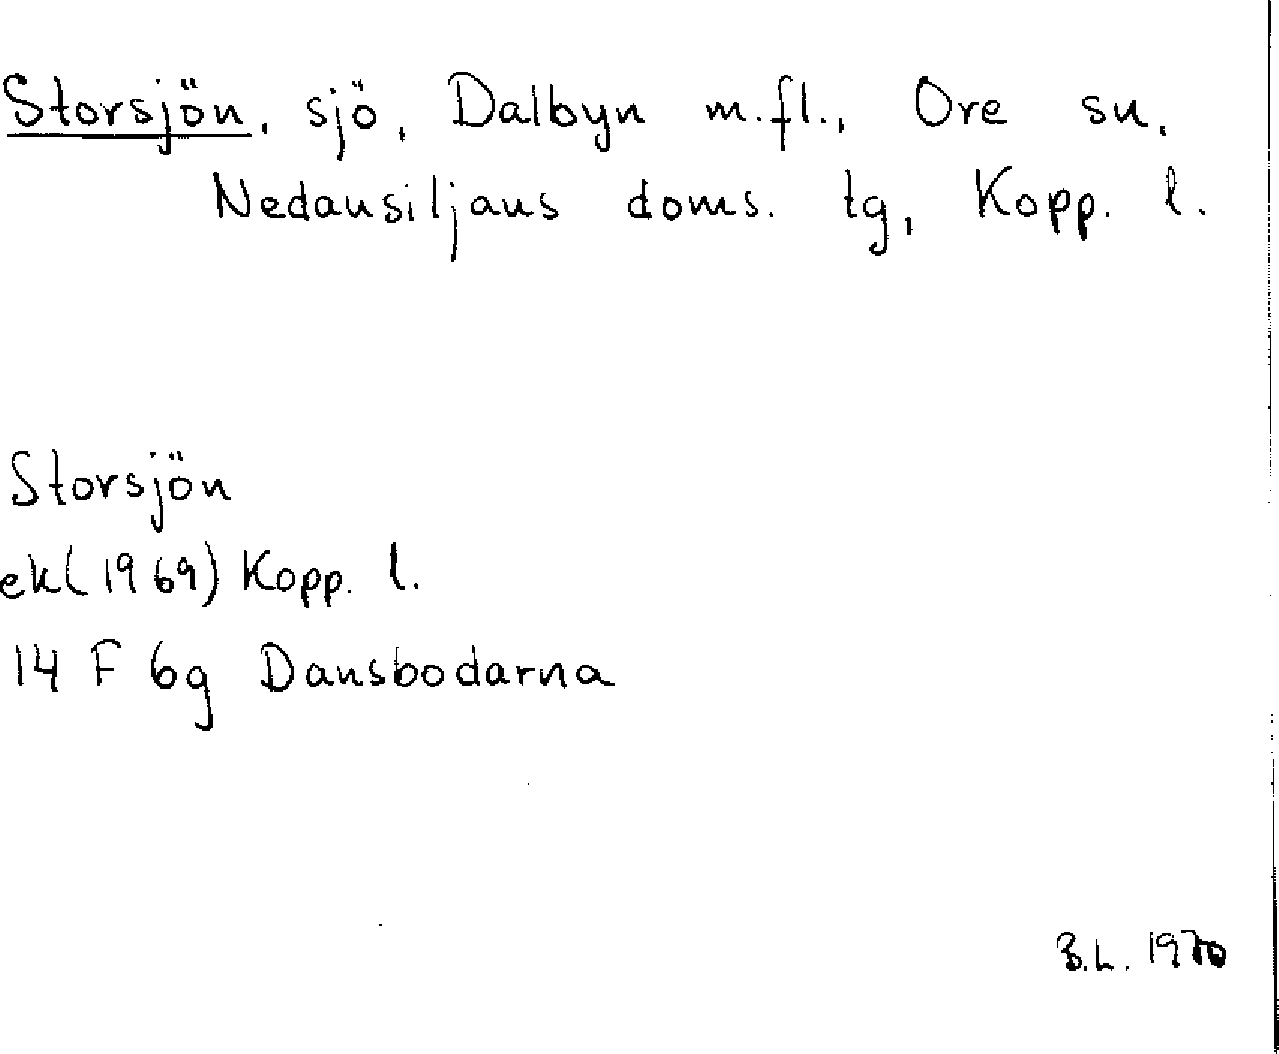 Storsjön, sjö, Dalbyn m.fl., Ore sn,
Nedansiljans doms. tg, Kopp. l.
Storsjön
ek (1969) Kopp. l.
14 F 6g Dansbodarna
B.L. 1970